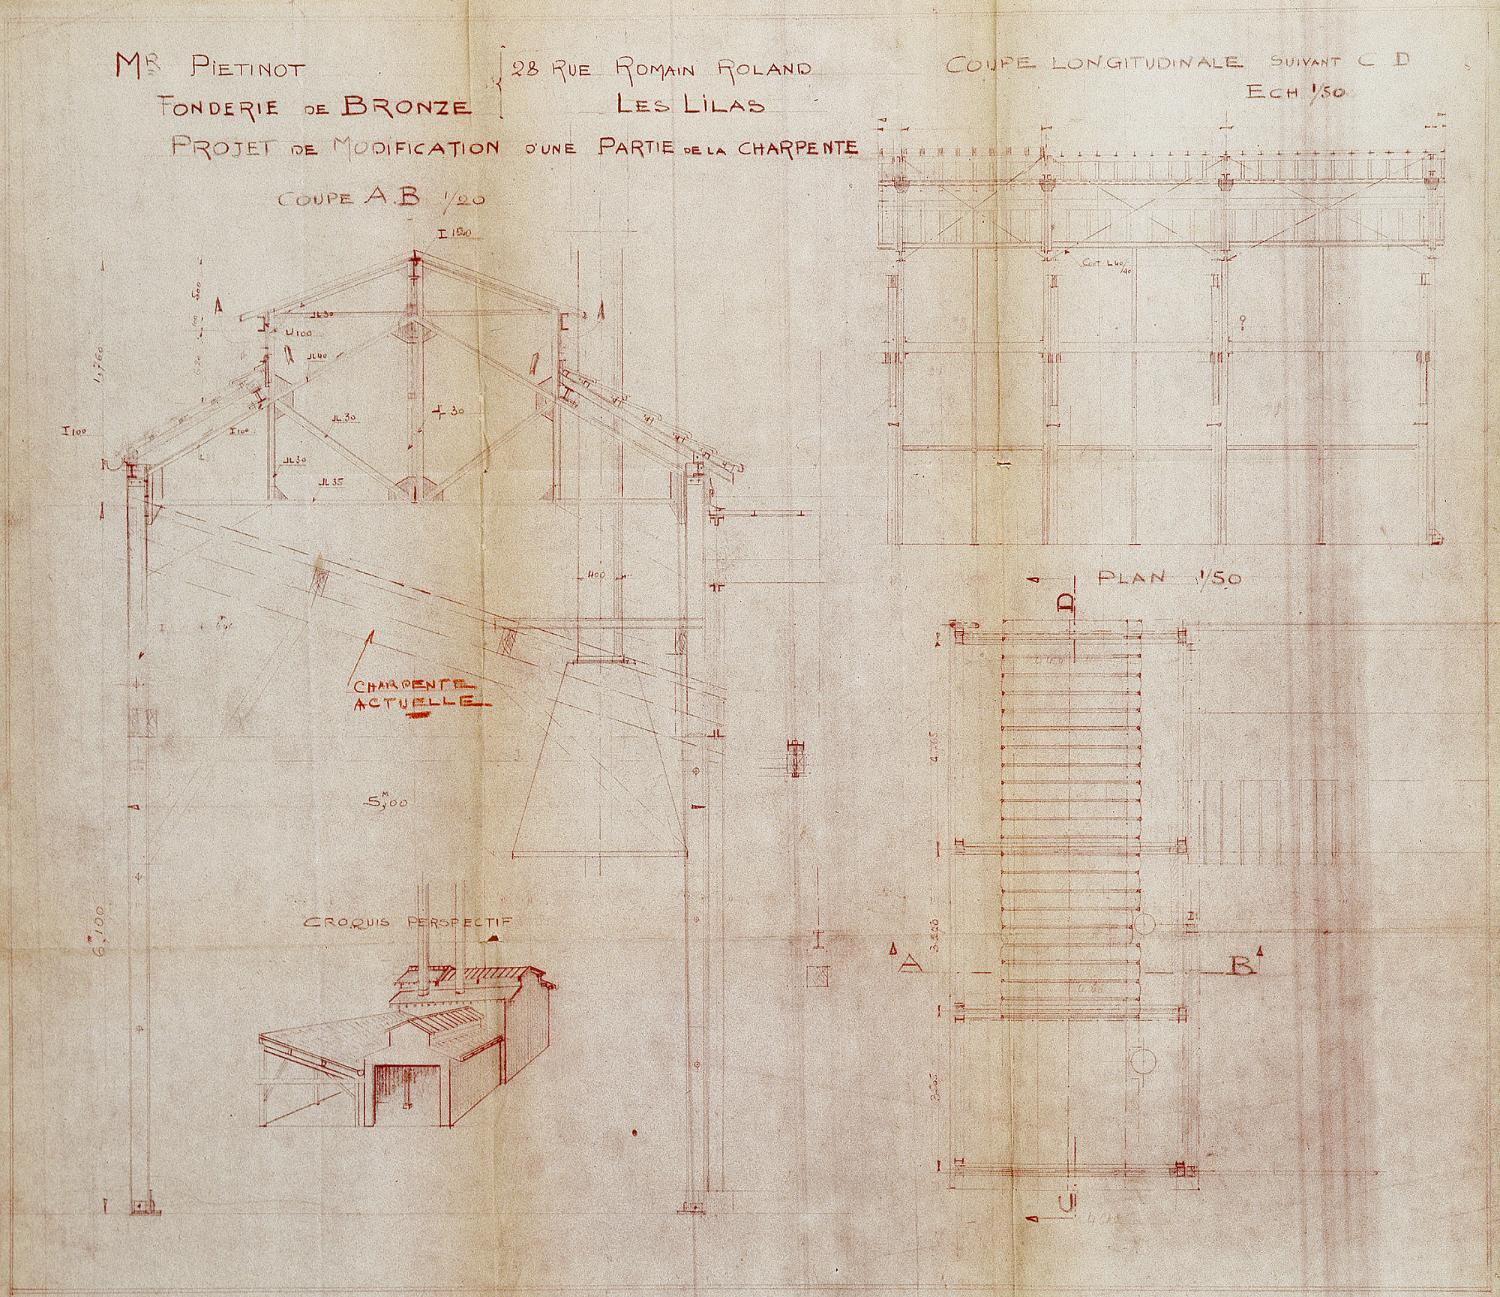 MR PIETINOT
FONDERIE DE BRONZE
28 RUE ROMAIN ROLAND
LES LILAS
PROJET DE MODIFICATION D'UNE PARTIE DE LA CHARPENTE
COUPE A.B 1/20
COUPE LONGITUDINALE SUIVANT C D
ECH 1/50
JL 30
U 100
JL 40
JL 30
30
I 100
I 100
JL 30
JL 35
1,760
400
CHARPENTE
ACTUELLE
5,M00
6,M100
CROQUIS PERSPECTIF
PLAN 1/50
D
A
B
C